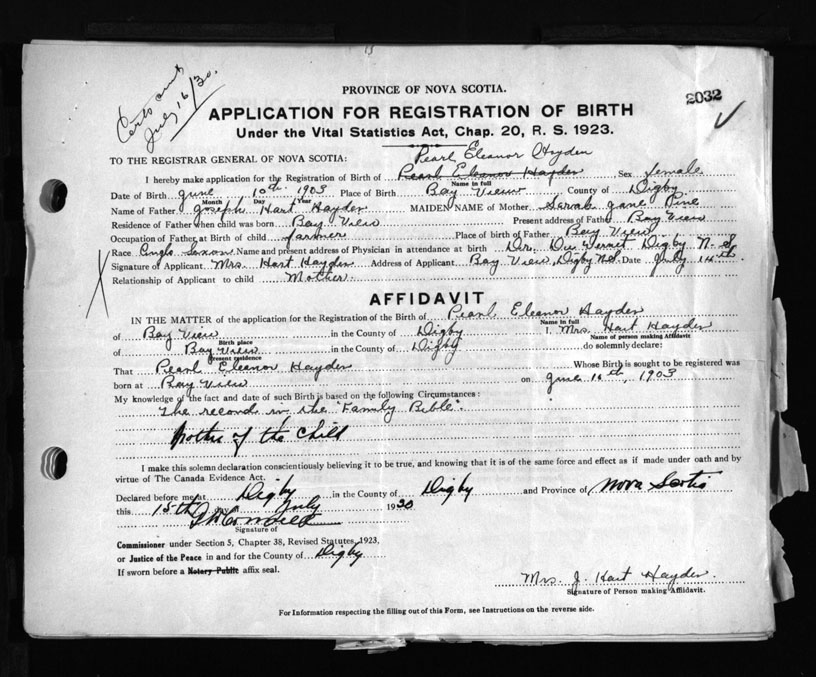 Certs sent
July 16/30.
PROVINCE OF NOVA SCOTIA.
2032
APPLICATION FOR REGISTRATION OF BIRTH
Under the Vital Statistics Act, Chap. 20, R. S. 1923.
TO THE REGISTRAR GENERAL OF NOVA SCOTIA:
Pearl Eleanor Hayden
I hereby make application for the Registration of Birth of Pearl Eleanor Hayden Sex female
Name in full
Date of Birth June 10th 1903 Place of Birth Bay View County of Digby
Month Day Year
Name of Father Joseph Hart Hayden MAIDEN NAME of Mother Sarah Jane Pine
Residence of Father when child was born Bay View Present address of Father Bay View
Occupation of Father at Birth of child farmer Place of Birth of Father Bay View
Race Anglo Saxon Name and present address of Physician in attendance at birth Dr. Du Vernet Digby N. S
Signature of Applicant Mrs. Hart Hayden Address of Applicant Bay View, Digby N.S. Date July 14th
Relationship of Applicant to child Mother
AFFIDAVIT
IN THE MATTER of the application for the Registration of the Birth of Pearl Eleanor Hayden
Name in full
of Bay View in the County of Digby I, Mrs. Hart Hayden
Birth place
Name of person making Affidavit
of Bay View in the County of Digby do solemnly declare:
Present residence
That Pearl Eleanor Hayden Whose Birth is sought to be registered was
born at Bay View on June 10th, 1903
My knowledge of the fact and date of such Birth is based on the following Circumstances:
"The record in the "Family Bible".
Mother of the Child
I make this solemn declaration conscientiously believing it to be true, and knowing that it is of the same force and effect as if made under oath and by
virtue of The Canada Evidence Act.
Declared before me at Digby in the County of Digby and Province of Nova Scotia
this 15th day of July 1930
Signature of
Commissioner under Section 5, Chapter 38, Revised Statutes, 1923,
or Justice of the Peace in and for the County of Digby
If sworn before a Notary Public affix seal.
Mrs. J. Hart Hayden.
Signature of Person making Affidavit.
For Information respecting the filling out of this Form, see Instructions on the reverse side.